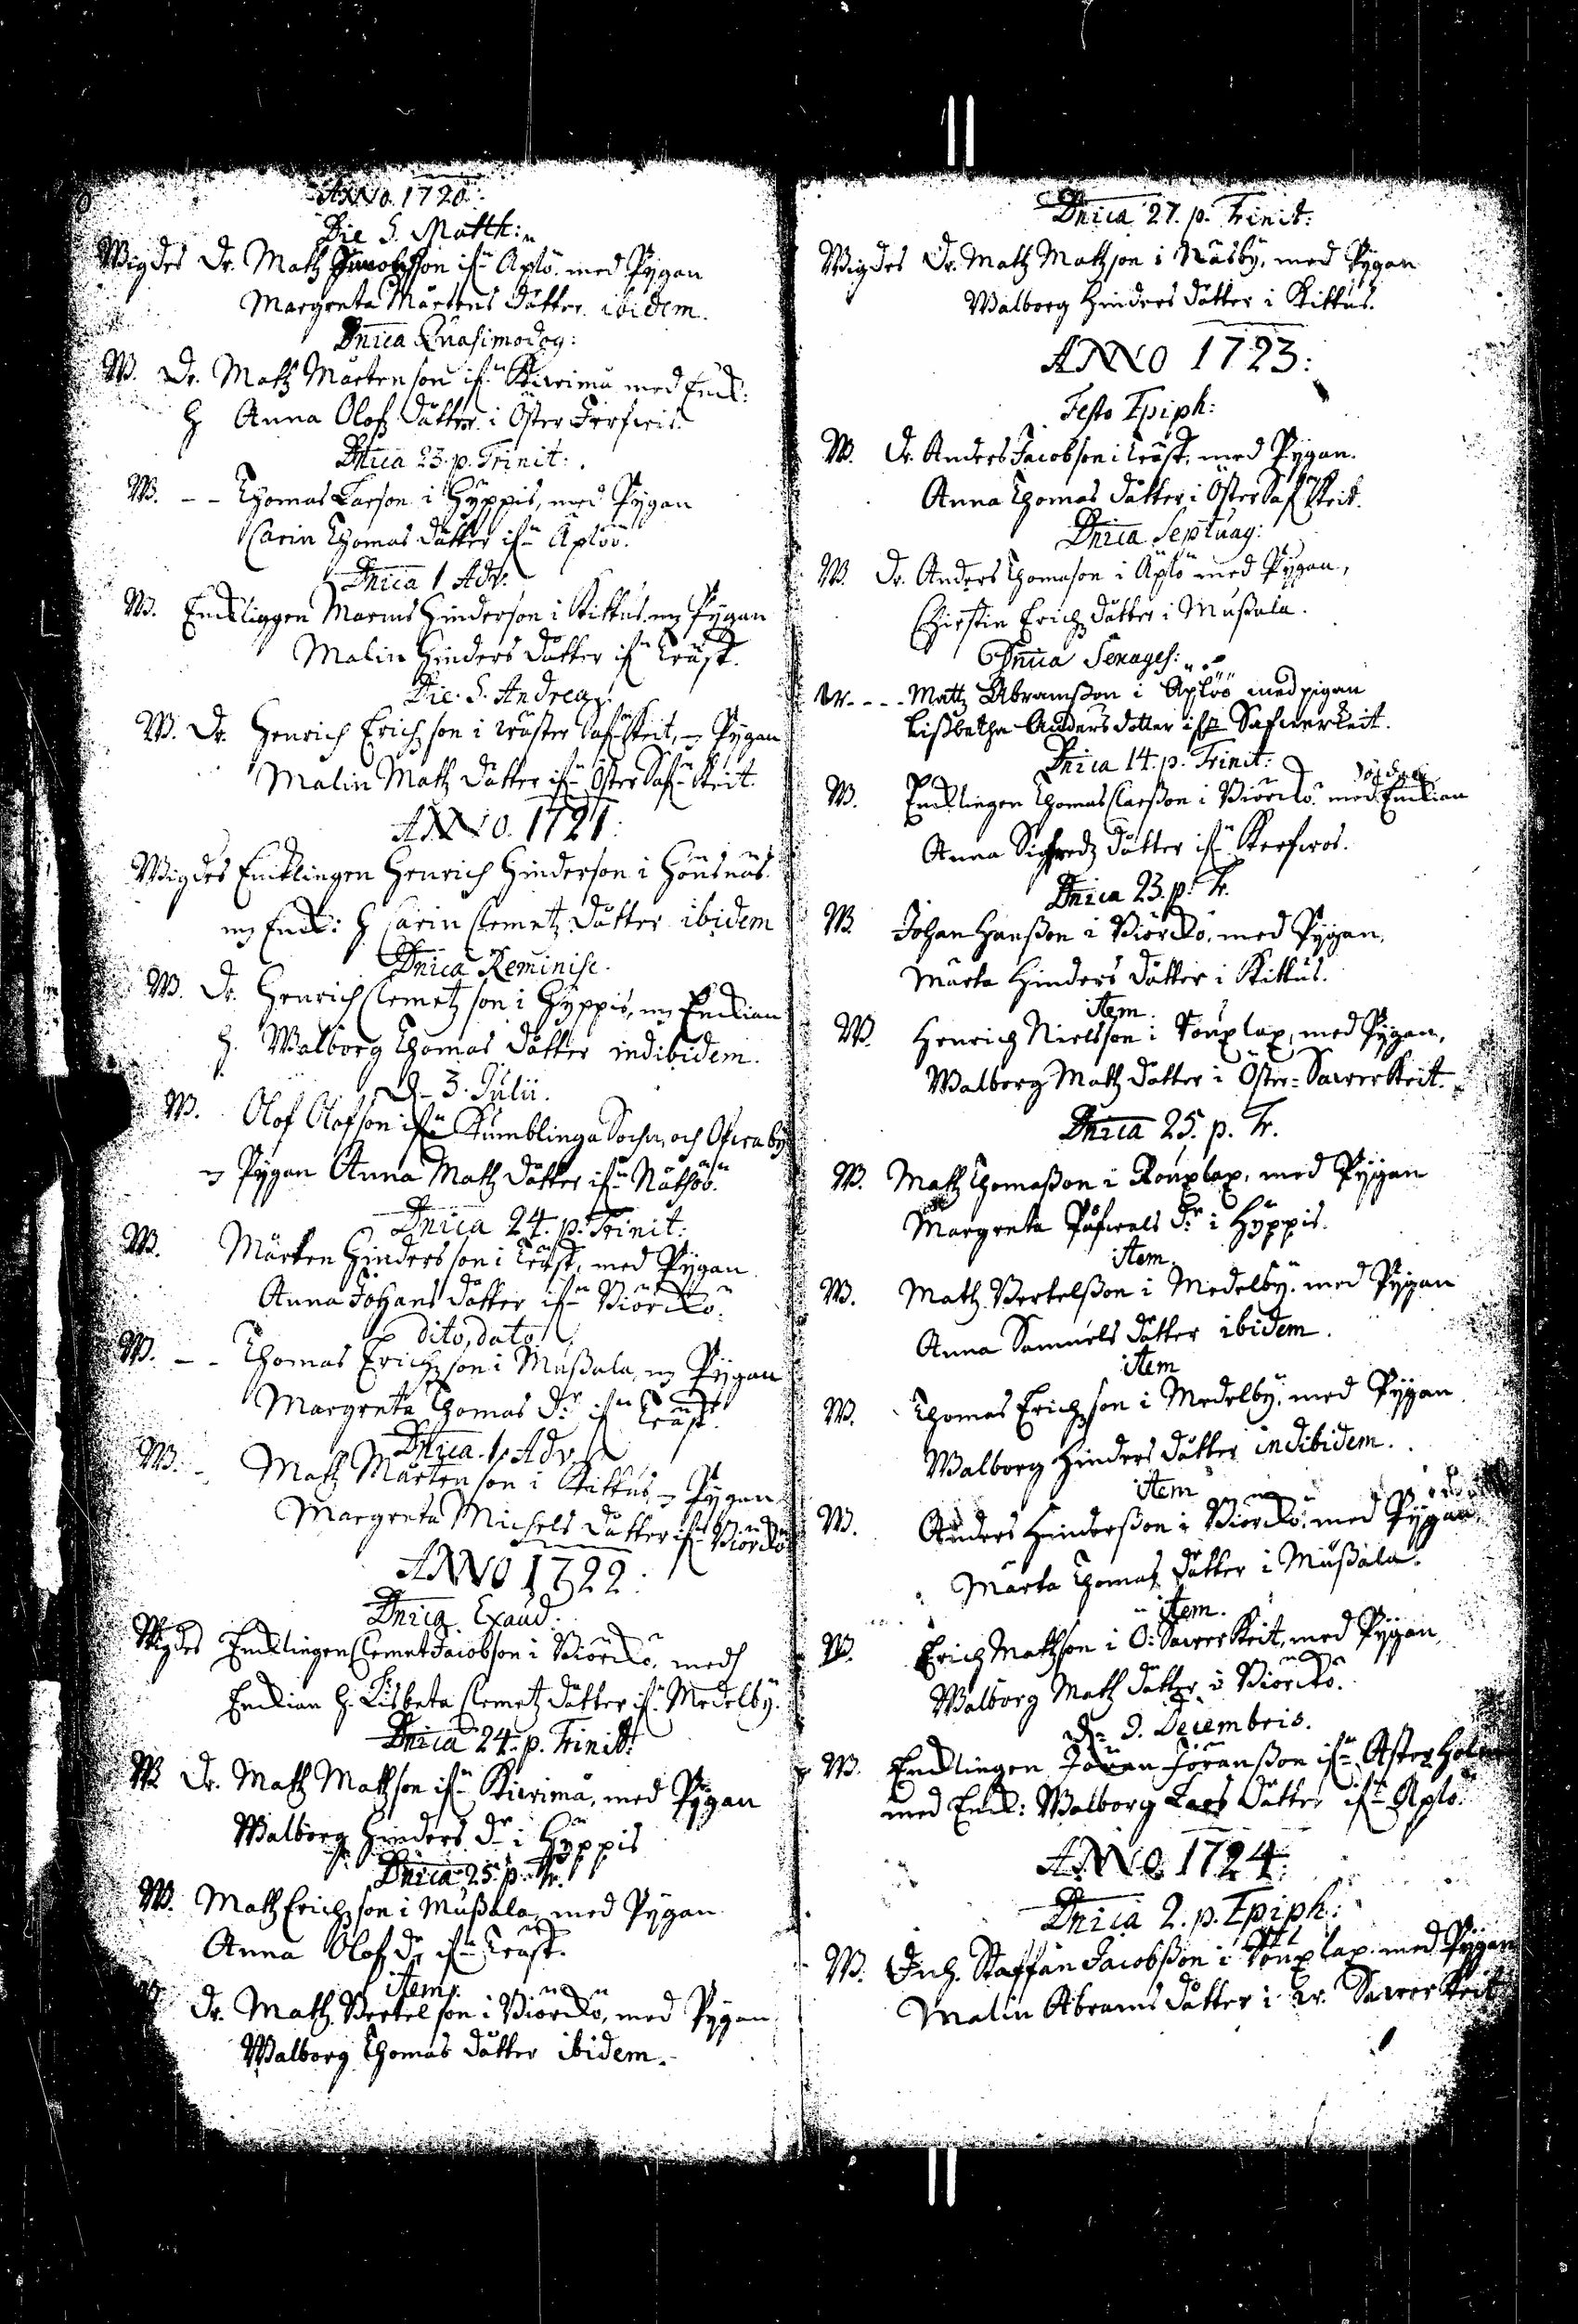 ANNO. 1720:
Die S. Matth:
Wigdes Dr. Matz Jacobsson ifrn Aplö. med Pÿgan
Margreta Mårtens dåtter. ibidem.
Dnica Quasimodog:
W. Dr. Matz Mårtenson ifrn Kivima med Enk:
H Anna Olofz dåtter i Öster
Dnica 23. p. Trinit:.
W. - - Thomas Larson i Hÿppis, med Pÿgan
Carin Thomas dåtter ifrn Äplöö.
Dnica 1 Adv:
W. Encklingen Marcus Hinderson i Kittus, mz Pÿgan
Malin Hinders dåtter ifrn Träsk.
Die. S. Andreæ:
W. Dr. Henrich Erichson i wäster Saf Keit, mz Pÿgan
Malin Matz dåtter ifrn Öster Saf Keit.
ANNO. 1721:
Wigdes Encklingen Henrich Hinderson i Hönsnäs.
mz Enck: H Carin Clemetz dåtter ibidem
Dnica Reminisc.
W. Dr. Henrich Clemetzson i Hÿppis, mz Enckian
H. Walborg Thomas dåtter indibidem.
D. 3. Julii.
W. Olof Olofson ifrn Kumblinge Sochn, och Öfwaby
mz Pÿgan Anna Matz dåtter ifrn Näthöö.
Dnica 24. p. Trinit:
W. Mårten Hindersson i Träsk, med Pÿgan
Anna Johans dåtter ifrn Biörckö.
dito, dato
W. - - Thomas Erichson i Mußala, mz Pÿgan
Margreta Thomas dr ifrn Träsk.
Dnica. 1. Adv.
W. - Matz Mårtenson i Kittus, mz Pÿgan
Margreta Michels dåtter ifrn Biörckö
ANNO 1722:
Dnica Exaud:
Wigdes Encklingen Clemet Jacobson i Biörckö, medh
Enckian H. Lisbeta Clemetz dåtter ifrn Medelbÿ.
Dnica 24. p. Trinit:
W. Dr. Matz Matzson ifrn Kivima, med Pÿgan
Walborg Hinders dr i Hÿppis
Dnica 25. p. Tr.
W. Matz Erichson i Mußala, med Pÿgan
Anna Olofz dr ifrn Träsk.
item:
Dr. Matz Bertelson i Biörckö, med Pÿgan
Walborg Thomas dåtter ibidem.
Dnica 27. p. Trinit:
Wigdes Dr. Matz Matzson i Näsbÿ, med Pÿgan
Walborg Hinders dåtter i Kittus.
ANNO 1723:
Festo Epiph:
W. Dr. Anders Jacobson i Träsk, med Pÿgan.
Anna Thomas dåtter i Öster Saf Keit.
Dnica Septuag:
W. Dr. Anders Thomason i Äplö med Pÿgan,
Chirstin Erichz dåtter i Mußala.
Dnica Sexages:
W. - - - Matz Abramßon i Aplöö med pigan
Lißbetha Anders dotter ifrn Safwerkeit.
Dnica 14. p. Trinit:
W. Encklingen Thomas Claeßon i Biörckö. med Enckian
Anna Sigfredz dåtter ifrn
Dnica 23. p. Tr.
W. Johan Hanßon i Biörckö, med Pÿgan,
Märta Hinders dåtter i Kittus.
item.
W. Henrich Nielsson i Rouxlax, med Pÿgan,
Walborg Matz dåtter i Öster-Sawer Keit.
Dnica 25. p. Tr.
W. Matz Thomaßon i Rouxlax, med Pÿgan
Margreta Påfwals dr i Hÿppis.
item.
W. Matz Bertelßon i Medelbÿ. med Pÿgan
Anna Samuels dåtter ibidem.
item
W. Thomas Erichson i Medelbÿ. med Pÿgan
Walborg Hinders dåtter indibidem.
item
W. Anders Hinderßon i Biörckö. med Pÿgan
Märta Thomas dåtter i Mußala.
item.
W. Erich Matzson i Ö: Sawer Keit, med Pÿgan,
Walborg Matz dåtter i Biörckö.
D. 9. Decembris.
W. Encklingen Jöran Jöranßon ifrn Asterholm
med Enck: Walborg Lars dåtter ifrn Aplö.
ANNO. 1724:
Dnica 2. p. Epiph:
W. Staffan Jacobßon i Rouxlax. med Pÿgan
Malin Abrams dåtter i W. Sawer Keit